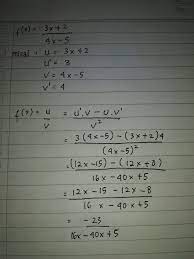 f(x) = 3x + 2
4x - 5
misal : u = 3x + 2
u' = 3
v = 4x - 5
v' = 4
f(x) = u = u'.v - u.v'
v v²
= 3(4x-5) - (3x+2)4
(4x-5)²
= (12x-15) - (12x+8)
16x - 40x + 5
= 12x - 15 - 12x - 8
16x - 40x + 5
= - 23
16x - 40x + 5